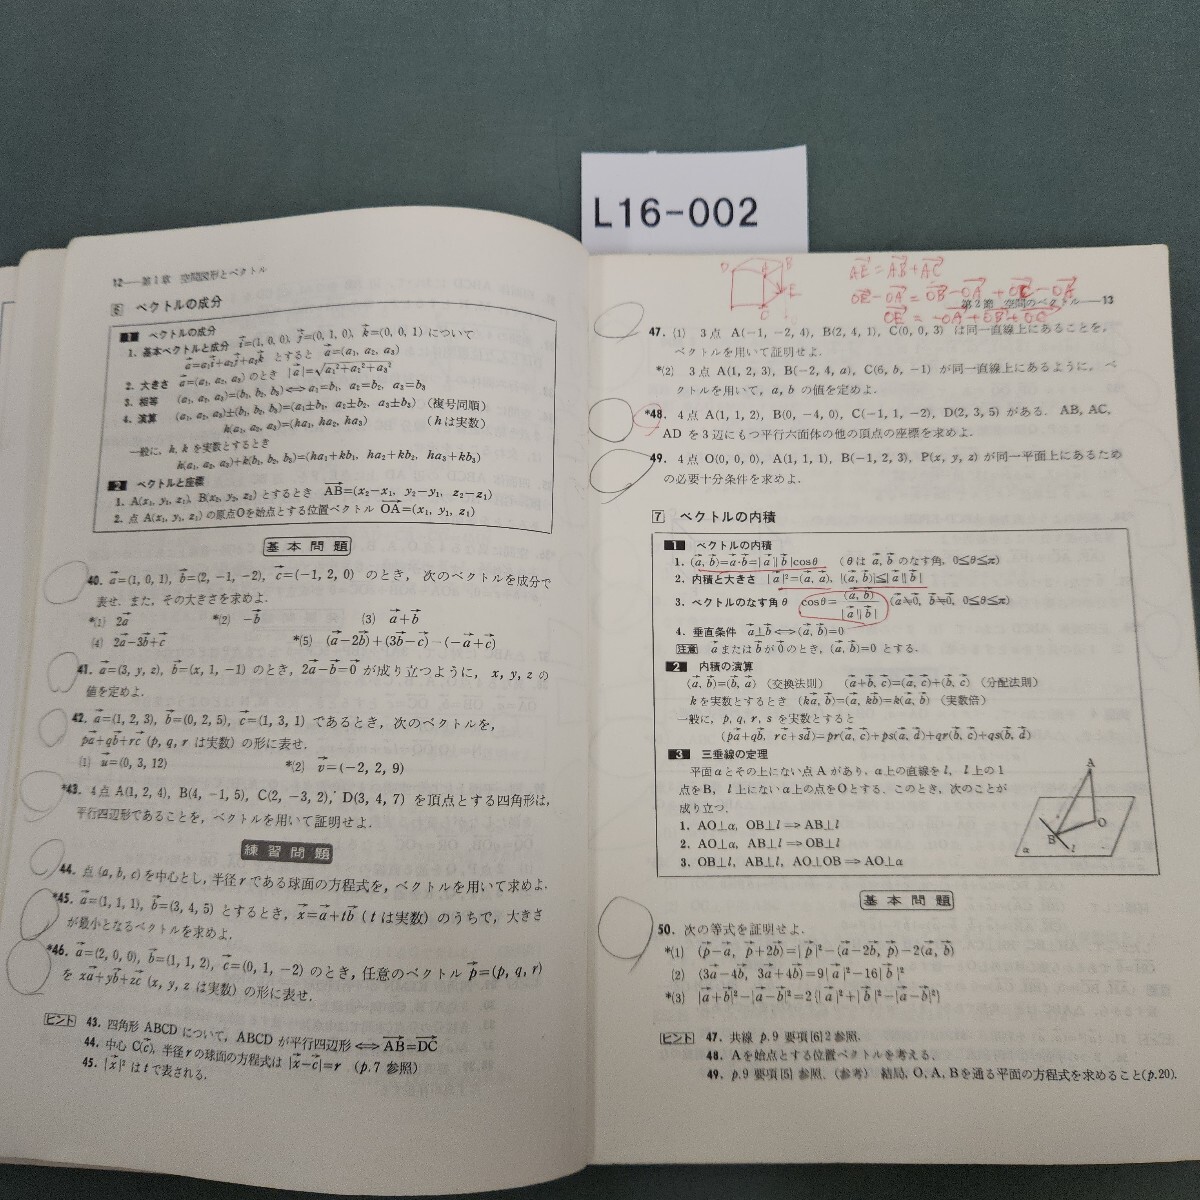 L16-002
12——第1章 空間図形とベクトル
6 ベクトルの成分
1 ベクトルの成分
1. 基本ベクトルと成分 i→=(1, 0, 0), j→=(0, 1, 0), k→=(0, 0, 1) について
a→=a₁i→+a₂j→+a₃k→ とすると a→=(a₁, a₂, a₃)
2. 大きさ a→=(a₁, a₂, a₃) のとき |a→|=√a₁²+a₂²+a₃²
3. 相等 (a₁, a₂, a₃)=(b₁, b₂, b₃)⟺a₁=b₁, a₂=b₂, a₃=b₃
4. 演算 (a₁, a₂, a₃)±(b₁, b₂, b₃)=(a₁±b₁, a₂±b₂, a₃±b₃) (複号同順)
k(a₁, a₂, a₃)=(ka₁, ka₂, ka₃) (kは実数)
一般に, h, k を実数とするとき
h(a₁, a₂, a₃)+k(b₁, b₂, b₃)=(ha₁+kb₁, ha₂+kb₂, ha₃+kb₃)
2 ベクトルと座標
1. A(x₁, y₁, z₁), B(x₂, y₂, z₂) とするとき AB→=(x₂−x₁, y₂−y₁, z₂−z₁)
2. 点 A(x₁, y₁, z₁) の原点Oを始点とする位置ベクトル OA→=(x₁, y₁, z₁)
基本問題
40. a→=(1, 0, 1), b→=(2, −1, −2), c→=(−1, 2, 0) のとき, 次のベクトルを成分で
表せ. また, その大きさを求めよ.
*(1) 2a→ *(2) −b→ (3) a→+b→
(4) 2a→−3b→+c→ *(5) (a→−2b→)+(3b→−c→)−(−a→+c→)
41. a→=(3, y, z), b→=(x, 1, −1) のとき, 2a→−b→=0→ が成り立つように, x, y, z の
値を定めよ.
42. a→=(1, 2, 3), b→=(0, 2, 5), c→=(1, 3, 1) であるとき, 次のベクトルを,
pa→+qb→+rc→ (p, q, r は実数) の形に表せ.
(1) u→=(0, 3, 12) *(2) v→=(−2, 2, 9)
*43. 4点 A(1, 2, 4), B(4, −1, 5), C(2, −3, 2), D(3, 4, 7) を頂点とする四角形は,
平行四辺形であることを, ベクトルを用いて証明せよ.
練習問題
44. 点 (a, b, c) を中心とし, 半径 r である球面の方程式を, ベクトルを用いて求めよ.
*45. a→=(1, 1, 1), b→=(3, 4, 5) とするとき, x→=a→+tb→ (t は実数) のうちで, 大きさ
が最小となるベクトルを求めよ.
*46. a→=(2, 0, 0), b→=(1, 1, 2), c→=(0, 1, −2) のとき, 任意のベクトル p→=(p, q, r)
を xa→+yb→+zc→ (x, y, z は実数) の形に表せ.
ヒント 43. 四角形 ABCD について, ABCD が平行四辺形⟺AB→=DC→
44. 中心 C(c→), 半径 r の球面の方程式は |x→−c→|=r (p.7 参照)
45. |x→|² は t で表される.
D A B E O
AE→=AB→+AC→
OE→−OA→=OB→−OA→+OC→−OA→
OE→=−OA→+OB→+OC→
第2節 空間のベクトル——13
47. (1) 3点 A(−1, −2, 4), B(2, 4, 1), C(0, 0, 3) は同一直線上にあることを,
ベクトルを用いて証明せよ.
*(2) 3点 A(1, 2, 3), B(−2, 4, a), C(6, b, −1) が同一直線上にあるように, ベ
クトルを用いて, a, b の値を定めよ.
*48. 4点 A(1, 1, 2), B(0, −4, 0), C(−1, 1, −2), D(2, 3, 5) がある. AB, AC,
AD を3辺にもつ平行六面体の他の頂点の座標を求めよ.
49. 4点 O(0, 0, 0), A(1, 1, 1), B(−1, 2, 3), P(x, y, z) が同一平面上にあるため
の必要十分条件を求めよ.
7 ベクトルの内積
1 ベクトルの内積
1. (a→, b→)=a→·b→=|a→||b→|cosθ (θは a→, b→ のなす角, 0≦θ≦π)
2. 内積と大きさ |a→|²=(a→, a→), |(a→, b→)|≦|a→||b→|
3. ベクトルのなす角θ cosθ=(a→, b→)/|a→||b→| (a→≠0→, b→≠0→, 0≦θ≦π)
4. 垂直条件 a→⊥b→⟺(a→, b→)=0
注意 a→ または b→ が 0→ のとき, (a→, b→)=0 とする.
2 内積の演算
(a→, b→)=(b→, a→) (交換法則) (a→+b→, c→)=(a→, c→)+(b→, c→) (分配法則)
k を実数とするとき (ka→, b→)=(a→, kb→)=k(a→, b→) (実数倍)
一般に, p, q, r, s を実数とすると
(pa→+qb→, rc→+sd→)=pr(a→, c→)+ps(a→, d→)+qr(b→, c→)+qs(b→, d→)
3 三垂線の定理
平面αとその上にない点Aがあり, α上の直線を l, l 上の1
点をB, l 上にないα上の点をOとする. このとき, 次のことが
成り立つ.
1. AO⊥α, OB⊥l ⟹ AB⊥l
2. AO⊥α, AB⊥l ⟹ OB⊥l
3. OB⊥l, AB⊥l, AO⊥OB ⟹ AO⊥α
A
O
B
α l
基本問題
50. 次の等式を証明せよ.
*(1) (p→−a→, p→+2b→)=|p→|²−(a→−2b→, p→)−2(a→, b→)
(2) (3a→−4b→, 3a→+4b→)=9|a→|²−16|b→|²
*(3) |a→+b→|²−|a→−b→|²=2{|a→|²+|b→|²−|a→−b→|²}
ヒント 47. 共線 p.9 要項[6]2参照.
48. Aを始点とする位置ベクトルを考える.
49. p.9 要項[5] 参照. (参考) 結局, O, A, Bを通る平面の方程式を求めること(p.20).